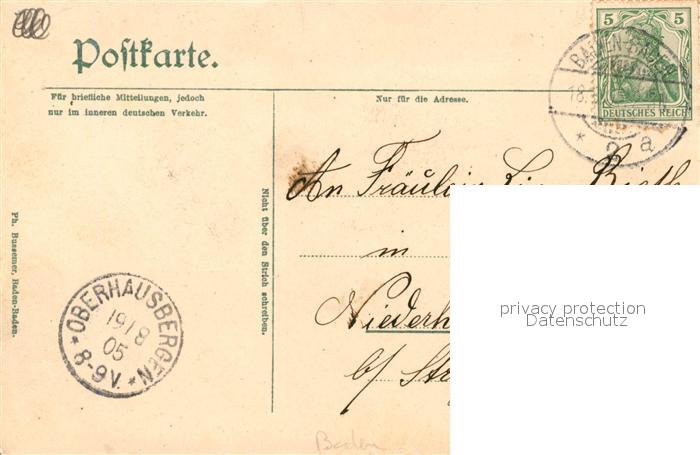 Postkarte.
5 5
DEUTSCHES REICH
BADEN-BADEN
18.
* 2 a
Für briefliche Mitteilungen, jedoch
nur im inneren deutschen Verkehr.
Nur für die Adresse.
An Fräulein
in
Niederh
b/ Str
Nicht über den Strich schreiben.
Ph. Bussemer, Baden-Baden.
* OBERHAUSBERGEN *
19 1 8
05
8-9V.
Baden
privacy protection
Datenschutz